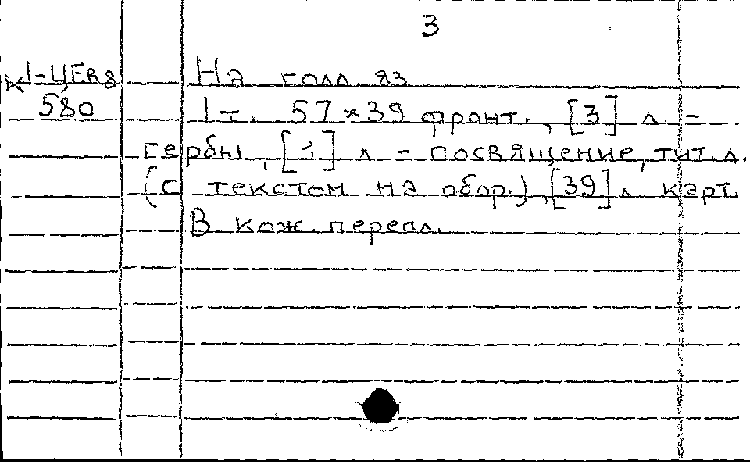 3
К 1-ЦЕв 8 На голл яз
580 1 т. 57 × 39 фронт., [3] л -
гербы, [1] л - посвящение, тит. л.
(с текстом на обор.), [39] л карт.
В кож. перепл.